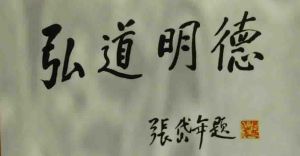 弘道明德
張岱年题